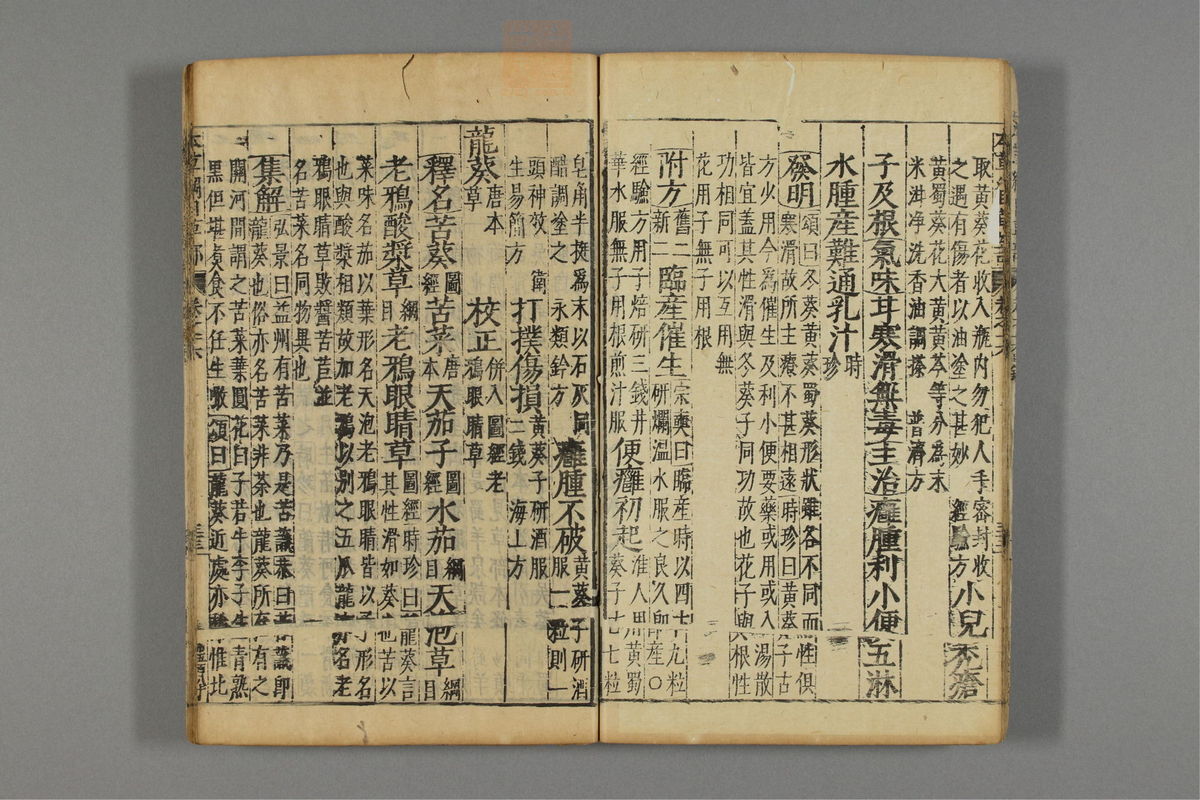 取黃葵花收入瓶内勿犯人手密封收
之遇有傷者以油塗之甚妙 經驗方 小兒禿瘡
黃蜀葵花大黃黃芩等分為末
米泔净洗香油調搽 普濟方
子及根氣味甘寒滑無毒主治癰腫利小便五淋
水腫産難通乳汁 時珍
發明 頌曰冬葵黃葵蜀葵形狀雖各不同而性俱
寒滑故所主療不甚相遠時珍曰黃葵子古
方少用今爲催生及利小便要藥或用或入湯散
皆宜蓋其性滑與冬葵子同功故也花子與根性
功相同可以互用無
花用子無子用根
附方 舊二新二 臨産催生 宗奭曰臨産時以四十九粒
研爛溫水服之良久即産○
經驗方用子焙研三錢井
華水服無子用根煎汁服 便癰初起 淮人用黃蜀
葵子十七粒
皂角半挺爲末以石灰同
醋調塗之 永類鈐方 癰腫不破 黃葵子研酒
服一粒則一
頭神效 衛
生易簡方 打撲傷損 黃葵子研酒服
二錢 海上方
龍葵 唐本草 校正 併入圖經老
鴉眼睛草
釋名苦葵 圖經 苦菜 唐本 天茄子 圖經 水茄 綱目 天泡草 綱目
老鴉酸漿草 綱目 老鴉眼睛草 圖經 時珍曰龍葵言
其性滑如葵也苦以
菜味名茄以葉形名天泡老鴉眼睛皆以子形名
也與酸漿相類故加老鴉以別之五爪龍亦名老
鴉眼睛草敗醬苦苣並
名苦菜名同物異也
集解 弘景曰益州有苦菜乃是苦蘵恭曰苦蘵即
龍葵也俗亦名苦菜非荼也龍葵所在有之
關河間謂之苦菜葉圓花白子若牛李子生青熟
黑但堪煮食不任生噉頌曰龍葵近處亦稀惟北